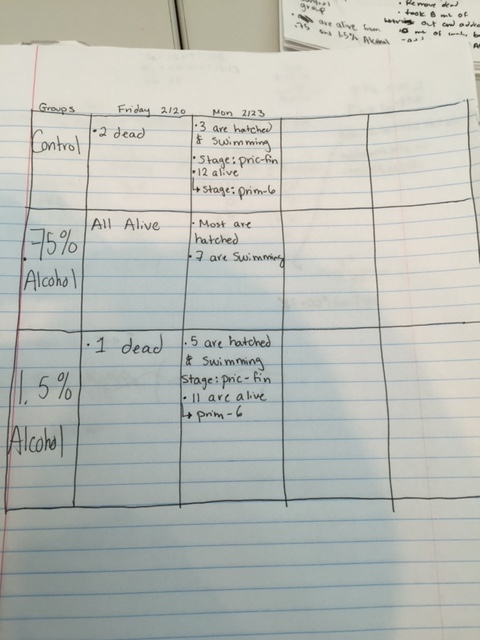 group
are alive from
.75 and 1.5% Alcohol
• Remove dead
• took 8 mL of
out and added
mL of
Groups
Friday 2/20
Mon 2/23
Control
• 2 dead
• 3 are hatched
& swimming
• Stage: pric-fin
• 12 alive
↳ stage: prim-6
.75%
Alcohol
All Alive
• Most are
hatched
• 7 are swimming
1.5%
Alcohol
• 1 dead
• 5 are hatched
& swimming
Stage: pric-fin
• 11 are alive
↳ prim-6